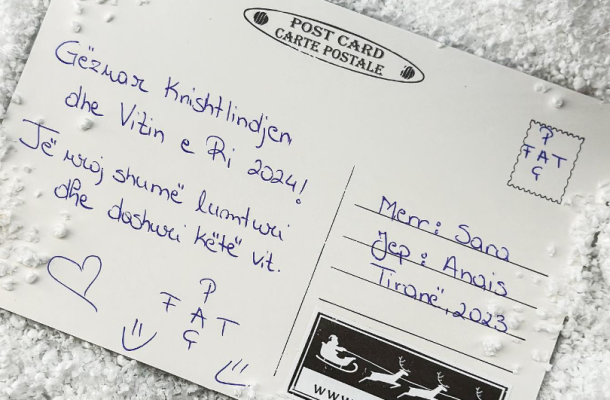 POST CARD
CARTE POSTALE
Gëzuar Krishtlindjen
dhe Vitin e Ri 2024!
Të uroj shumë lumturi
dhe dashuri këtë vit.
P
F A T
Ç
P
F A T
Ç
Merr: Sara
Jep: Anais
Tiranë, 2023
www.